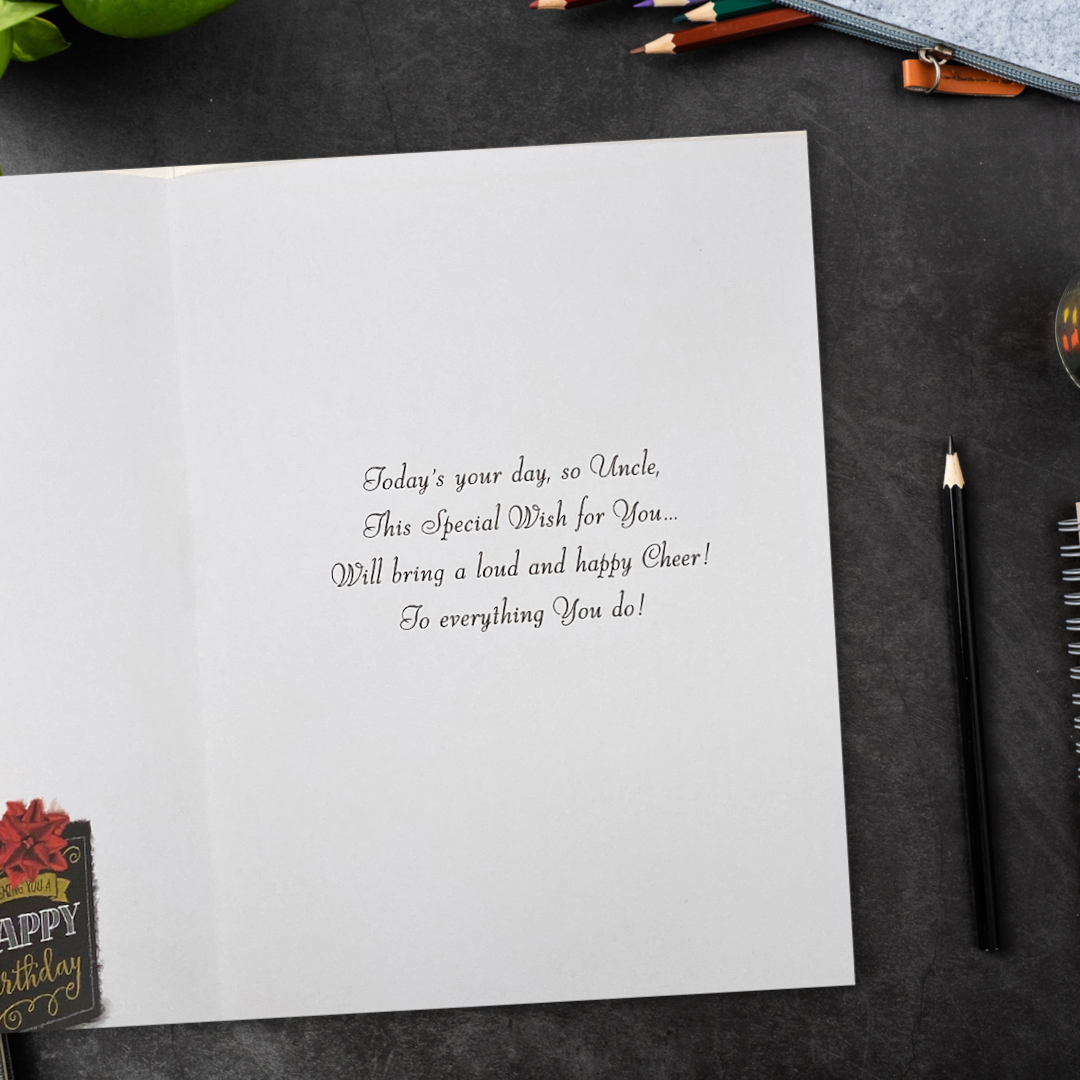 Today's your day, so Uncle,
This Special Wish for You...
Will bring a loud and happy Cheer!
To everything You do!
YOU A